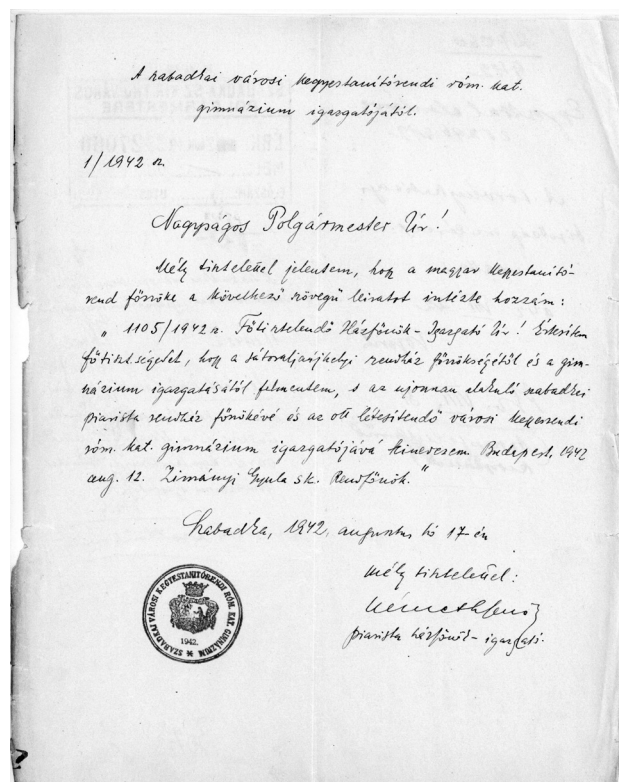 A szabadkai városi kegyestanítórendi róm. kat.
gimnázium igazgatójától.
1/1942 sz.
Nagyságos Polgármester Úr!
Mély tisztelettel jelentem, hogy a magyar kegyestanító-
rend főnöke a következő szövegű leiratot intézte hozzám:
„1105/1942 sz. Főtisztelendő Házfőnök-Igazgató Úr! Értesítem
főtisztségedet, hogy a sátoraljaújhelyi rendház főnökségétől és a gim-
názium igazgatásától felmentem, s az ujonnan alakuló szabadkai
piarista rendház főnökévé és az ott létesítendő városi kegyesrendi
róm. kat. gimnázium igazgatójává kinevezem. Budapest, 1942
aug. 12. Zimányi Gyula sk. Rendfőnök."
Szabadka, 1942. augusztus hó 17-én
Mély tisztelettel:
Németh Jenő
piarista házfőnök-igazgató.
SZABADKAI VÁROSI KEGYESTANITÓRENDI RÓM. KAT. GIMNÁZIUM
1942.